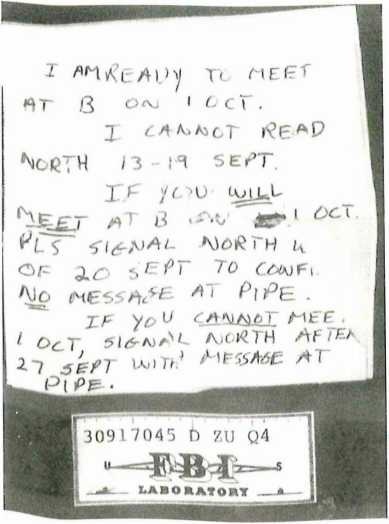 I AM READY TO MEET
AT B ON 1 OCT.
I CANNOT READ
NORTH 13-19 SEPT.
IF YOU WILL
MEET AT B ON 1 OCT.
PLS SIGNAL NORTH
OF 20 SEPT TO CONFI
NO MESSAGE AT PIPE.
IF YOU CANNOT MEE
1 OCT, SIGNAL NORTH AFTER
27 SEPT WITH MESSAGE AT
PIPE.
30917045 D ZU Q4
U FBI S
LABORATORY